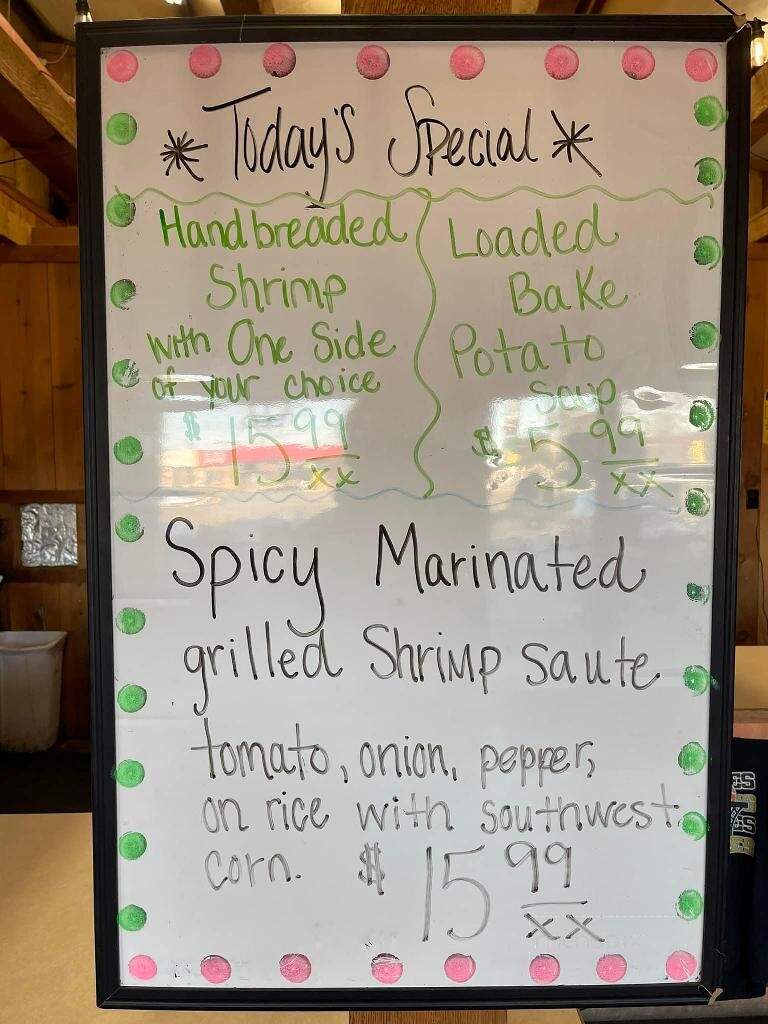 * Today's Special *
Hand breaded
Shrimp
with One Side
of your choice
$15 99/xx
Loaded
Bake
Potato
Soup
$5 99/xx
Spicy Marinated
grilled Shrimp saute
tomato, onion, pepper,
on rice with southwest
corn. $15 99/xx